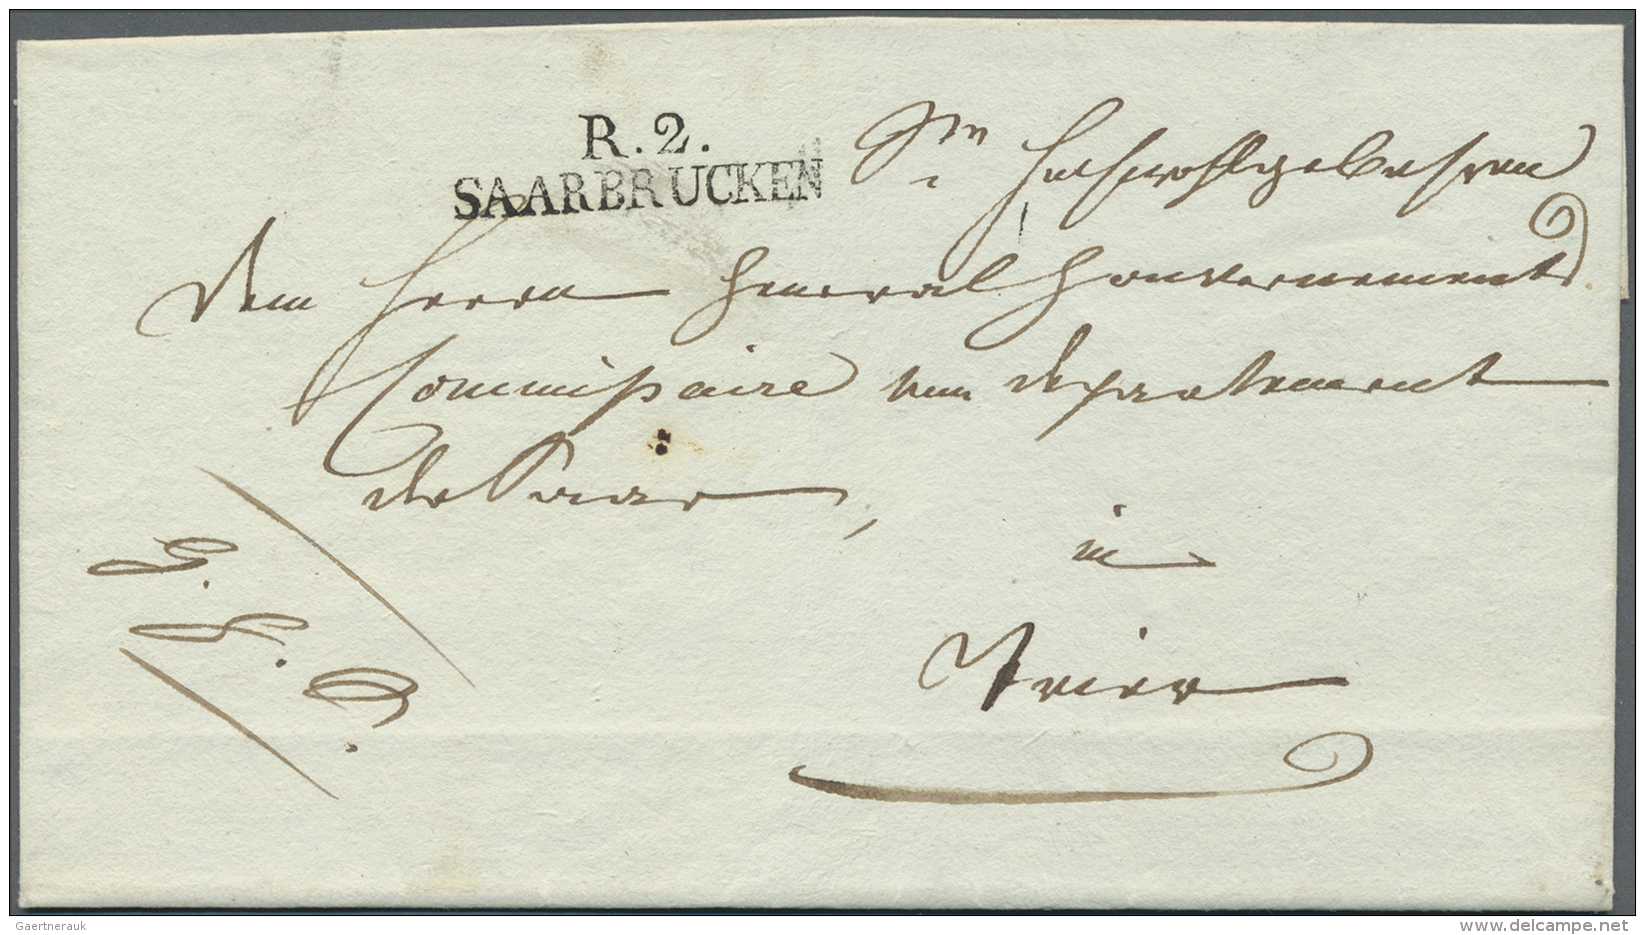 R. 2.
SAARBRUCKEN
Sr Hochwohlgebohren
dem Herrn General Gouvernements
Commissaire vom Departement
der Saar,
in
Trier
Gaertnerauk
www.delcampe.net